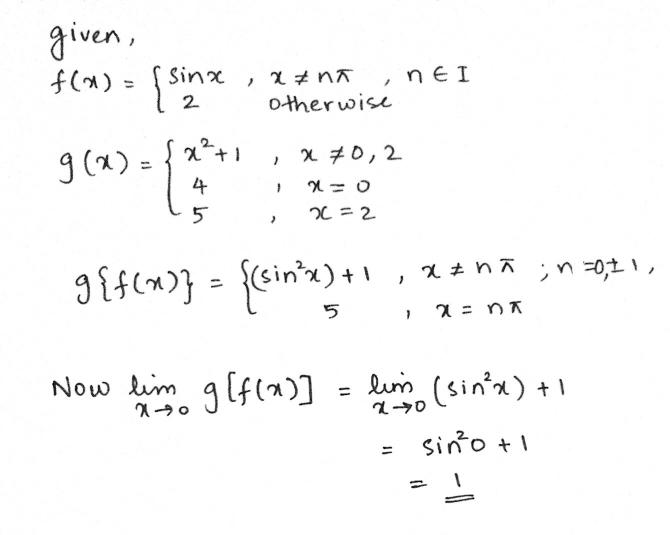 given,
f(x) = { sinx , x ≠ nπ , n ∈ I
2 otherwise
g(x) = { x²+1 , x ≠ 0, 2
4 , x = 0
5 , x = 2
g{f(x)} = { (sin²x) + 1 , x ≠ nπ ; n = 0, ± 1,
5 , x = nπ
Now lim x→0 g[f(x)] = lim x→0 (sin²x) + 1
= sin²0 + 1
= 1